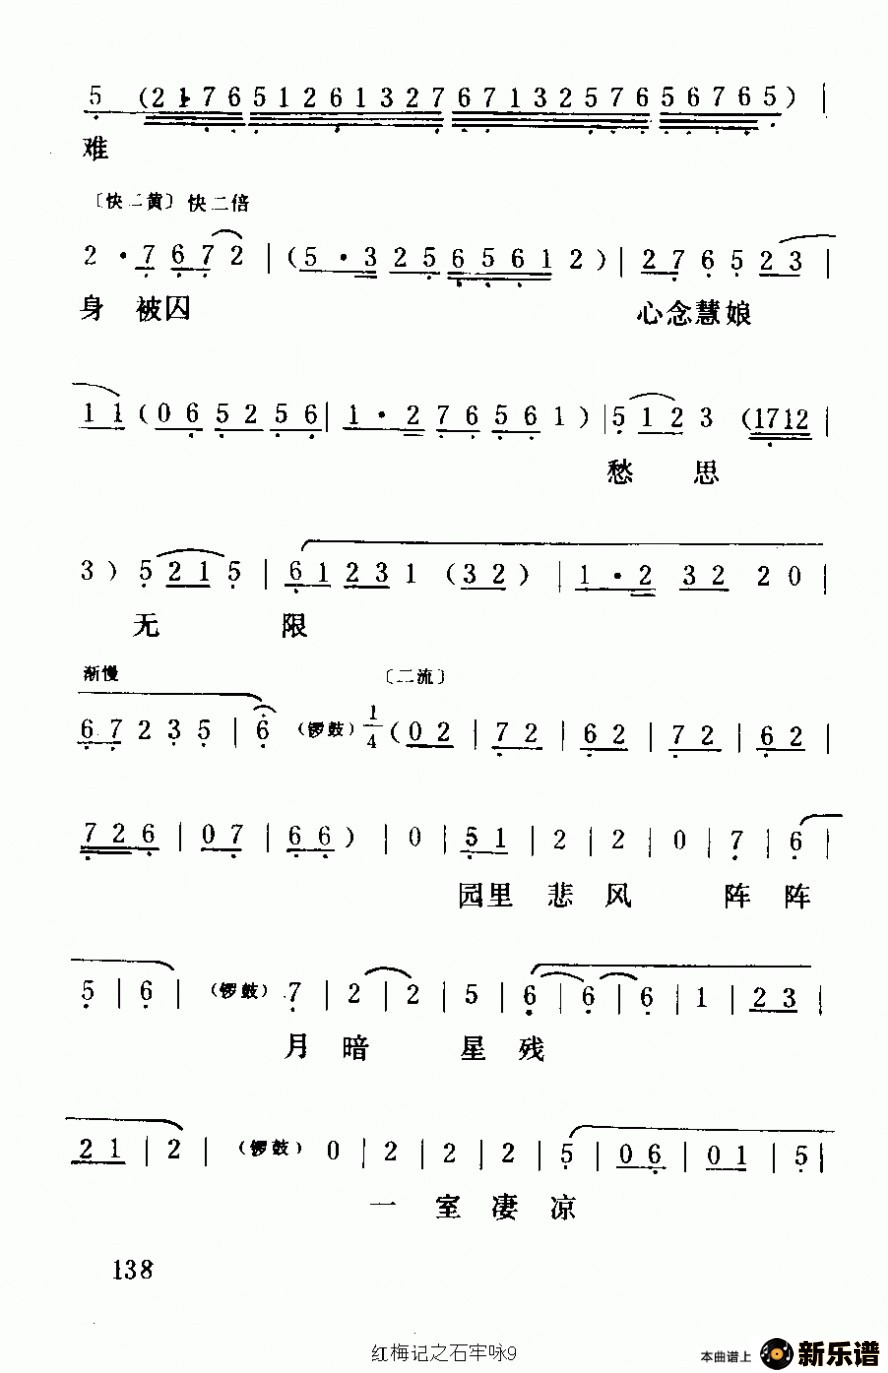 5 (2 1 7 6 5 1 2 6 1 3 2 7 6 7 1 3 2 5 7 6 5 6 7 6 5) |
难
〔快二黄〕快二倍
2 · 7 6 7 2 | (5 · 3 2 5 6 5 6 1 2) | 2 7 6 5 2 3 |
身 被囚 心念慧娘
1 1 (0 6 5 2 5 6 | 1 · 2 7 6 5 6 1) | 5 1 2 3 (1712 |
愁 思
3) 5 2 1 5 | 6 1 2 3 1 (3 2) | 1 · 2 3 2 2 0 |
无 限
渐慢 〔二流〕
6 7 2 3 5 | 6 (锣鼓) 1/4 (0 2 | 7 2 | 6 2 | 7 2 | 6 2 |
7 2 6 | 0 7 | 6 6) | 0 | 5 1 | 2 | 2 | 0 | 7 | 6 |
园里 悲 风 阵 阵
5 | 6 | (锣鼓) 7 | 2 | 2 | 5 | 6 | 6 | 6 | 1 | 2 3 |
月 暗 星 残
2 1 | 2 | (锣鼓) 0 | 2 | 2 | 2 | 5 | 0 6 | 0 1 | 5 |
一 室 凄 凉
138
红梅记之石牢咏9
本曲谱上 新乐谱